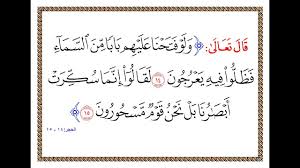 قَالَ تَعَالَى: ﴿ وَلَوْ فَتَحْنَا عَلَيْهِم بَابًا مِّنَ ٱلسَّمَآءِ
فَظَلُّوا۟ فِيهِ يَعْرُجُونَ ١٤ لَقَالُوٓا۟ إِنَّمَا سُكِّرَتْ
أَبْصَٰرُنَا بَلْ نَحْنُ قَوْمٌ مَّسْحُورُونَ ١٥ ﴾
الحجر: ١٤ - ١٥